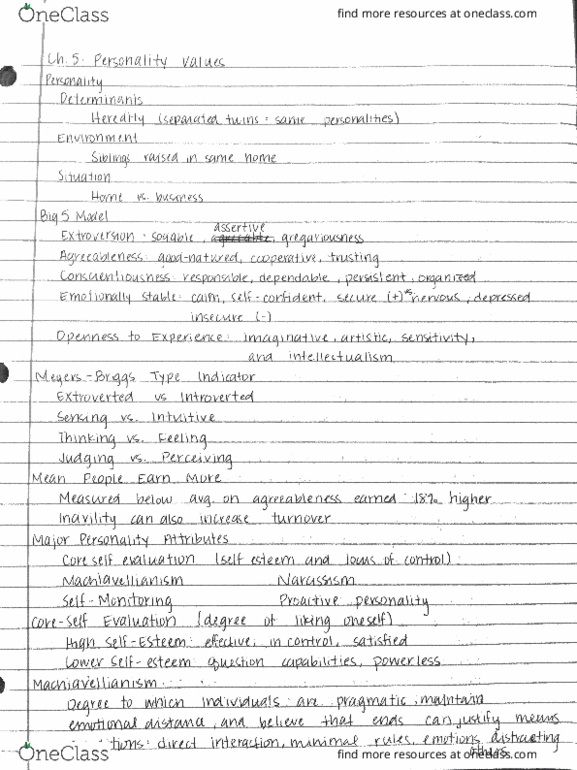 OneClass
find more resources at oneclass.com
Ch. 5. Personality values
Personality
Determinanis
Heredity (separated twins: same personalities)
Environment
Siblings raised in same home
Situation
Home vs. business
Big 5 Model
assertive
Extroversion: soyable, agreeable, gregariousness
Agreeableness: good-natured, cooperative, trusting
Conscientiousness: responsible, dependable, persistent, organized
Emotionally stable: calm, self-confident, secure (+) nervous, depressed
insecure (-)
Openness to Experience: Imaginative, artistic, sensitivity,
and intellectualism
Meyers-Briggs Type Indicator
Extroverted vs Introverted
Sensing vs. Intuitive
Thinking vs. Feeling
Judging vs. Perceiving
Mean People Earn More
Measured below avg. on agreeableness earned 18% higher
Inavility can also increase turnover
Major Personality Attributes
Core self evaluation (self esteem and locus of control)
Machiavellianism Narcassism
Self-Monitoring Proactive personality
Core-Self Evaluation (degree of liking oneself)
High Self-Esteem: effective, in control, satisfied
Lower Self-esteem question capabilities, powerless
Machiavellianism
Degree to which individuals are pragmatic, maintain
emotional distance, and believe that ends can justify means
tions: direct interaction, minimal rules, emotions distracting
others
OneClass
find more resources at oneclass.com